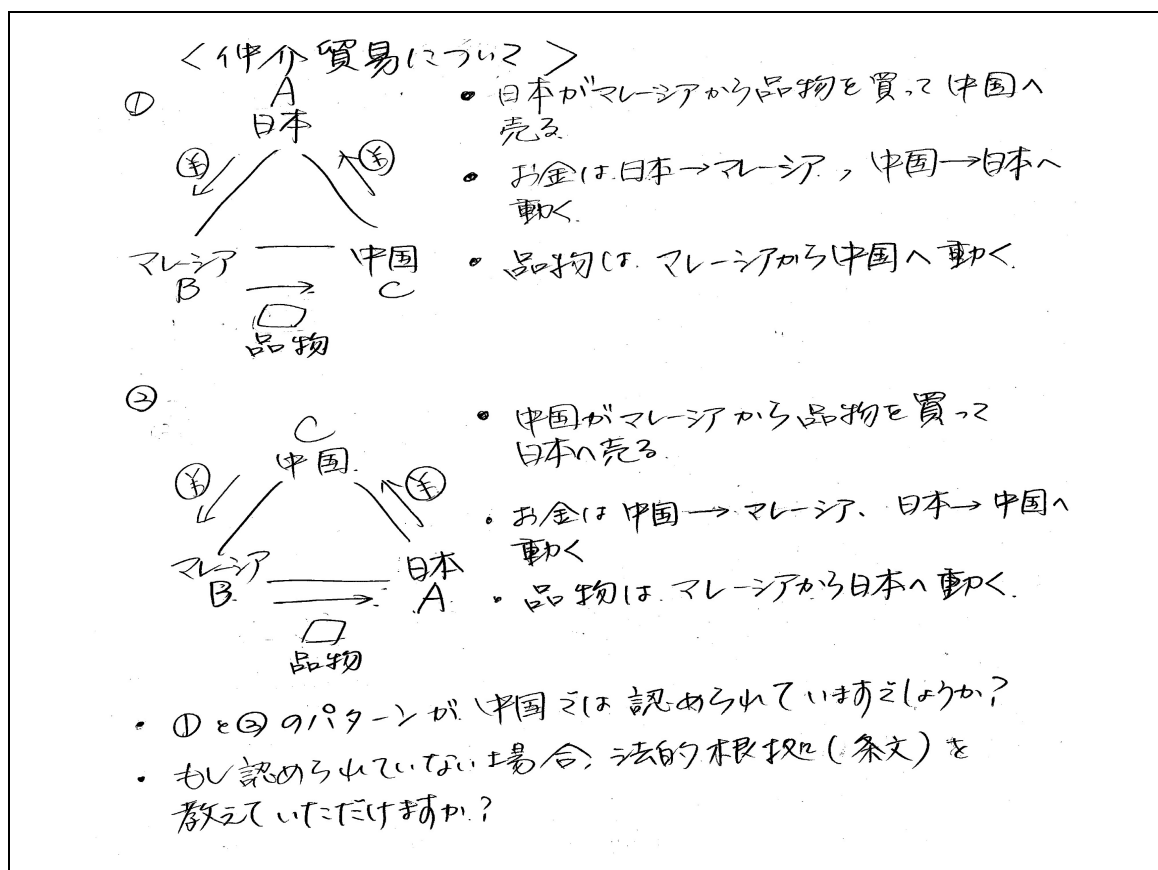 <仲介貿易について>
①
A
日本
¥
¥
マレーシア
B
中国
C
品物
・日本がマレーシアから品物を買って中国へ
売る
・お金は日本→マレーシア、中国→日本へ
動く.
・品物は、マレーシアから中国へ動く.
②
C
中国.
¥
¥
マレーシア
B.
日本
A
品物
・中国がマレーシアから品物を買って
日本へ売る.
・お金は中国→マレーシア、日本→中国へ
動く
・品物は、マレーシアから日本へ動く.
・①と②のパターンが、中国では認められていますでしょうか?
・もし認められていない場合、法的根拠(条文)を
教えていただけますか?